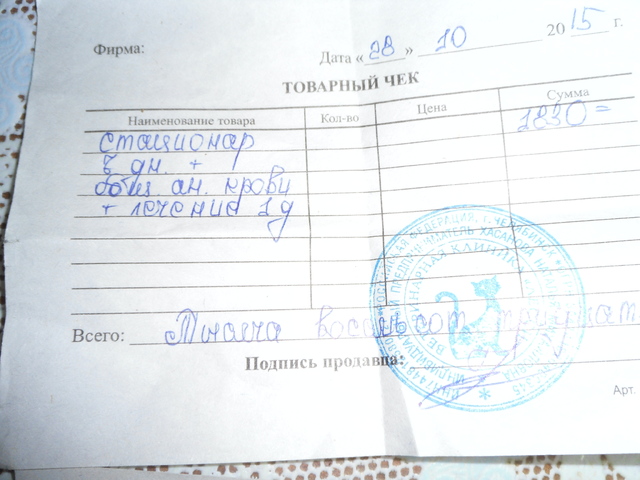 Фирма:
Дата «28» 10 2015 г.
ТОВАРНЫЙ ЧЕК
Наименование товара Кол-во Цена Сумма
стационар 1830=
дн. +
общ. ан. крови
+ лечение 1 д
Всего: Тысяча восемьсот тридцат
Подпись продавца:
Арт.
РОССИЙСКАЯ ФЕДЕРАЦИЯ, г. ЧЕЛЯБИНСК
ПРЕДПРИНИМАТЕЛЬ ХАСАНОВА
ВЕТЕРИНАРНАЯ КЛИНИКА